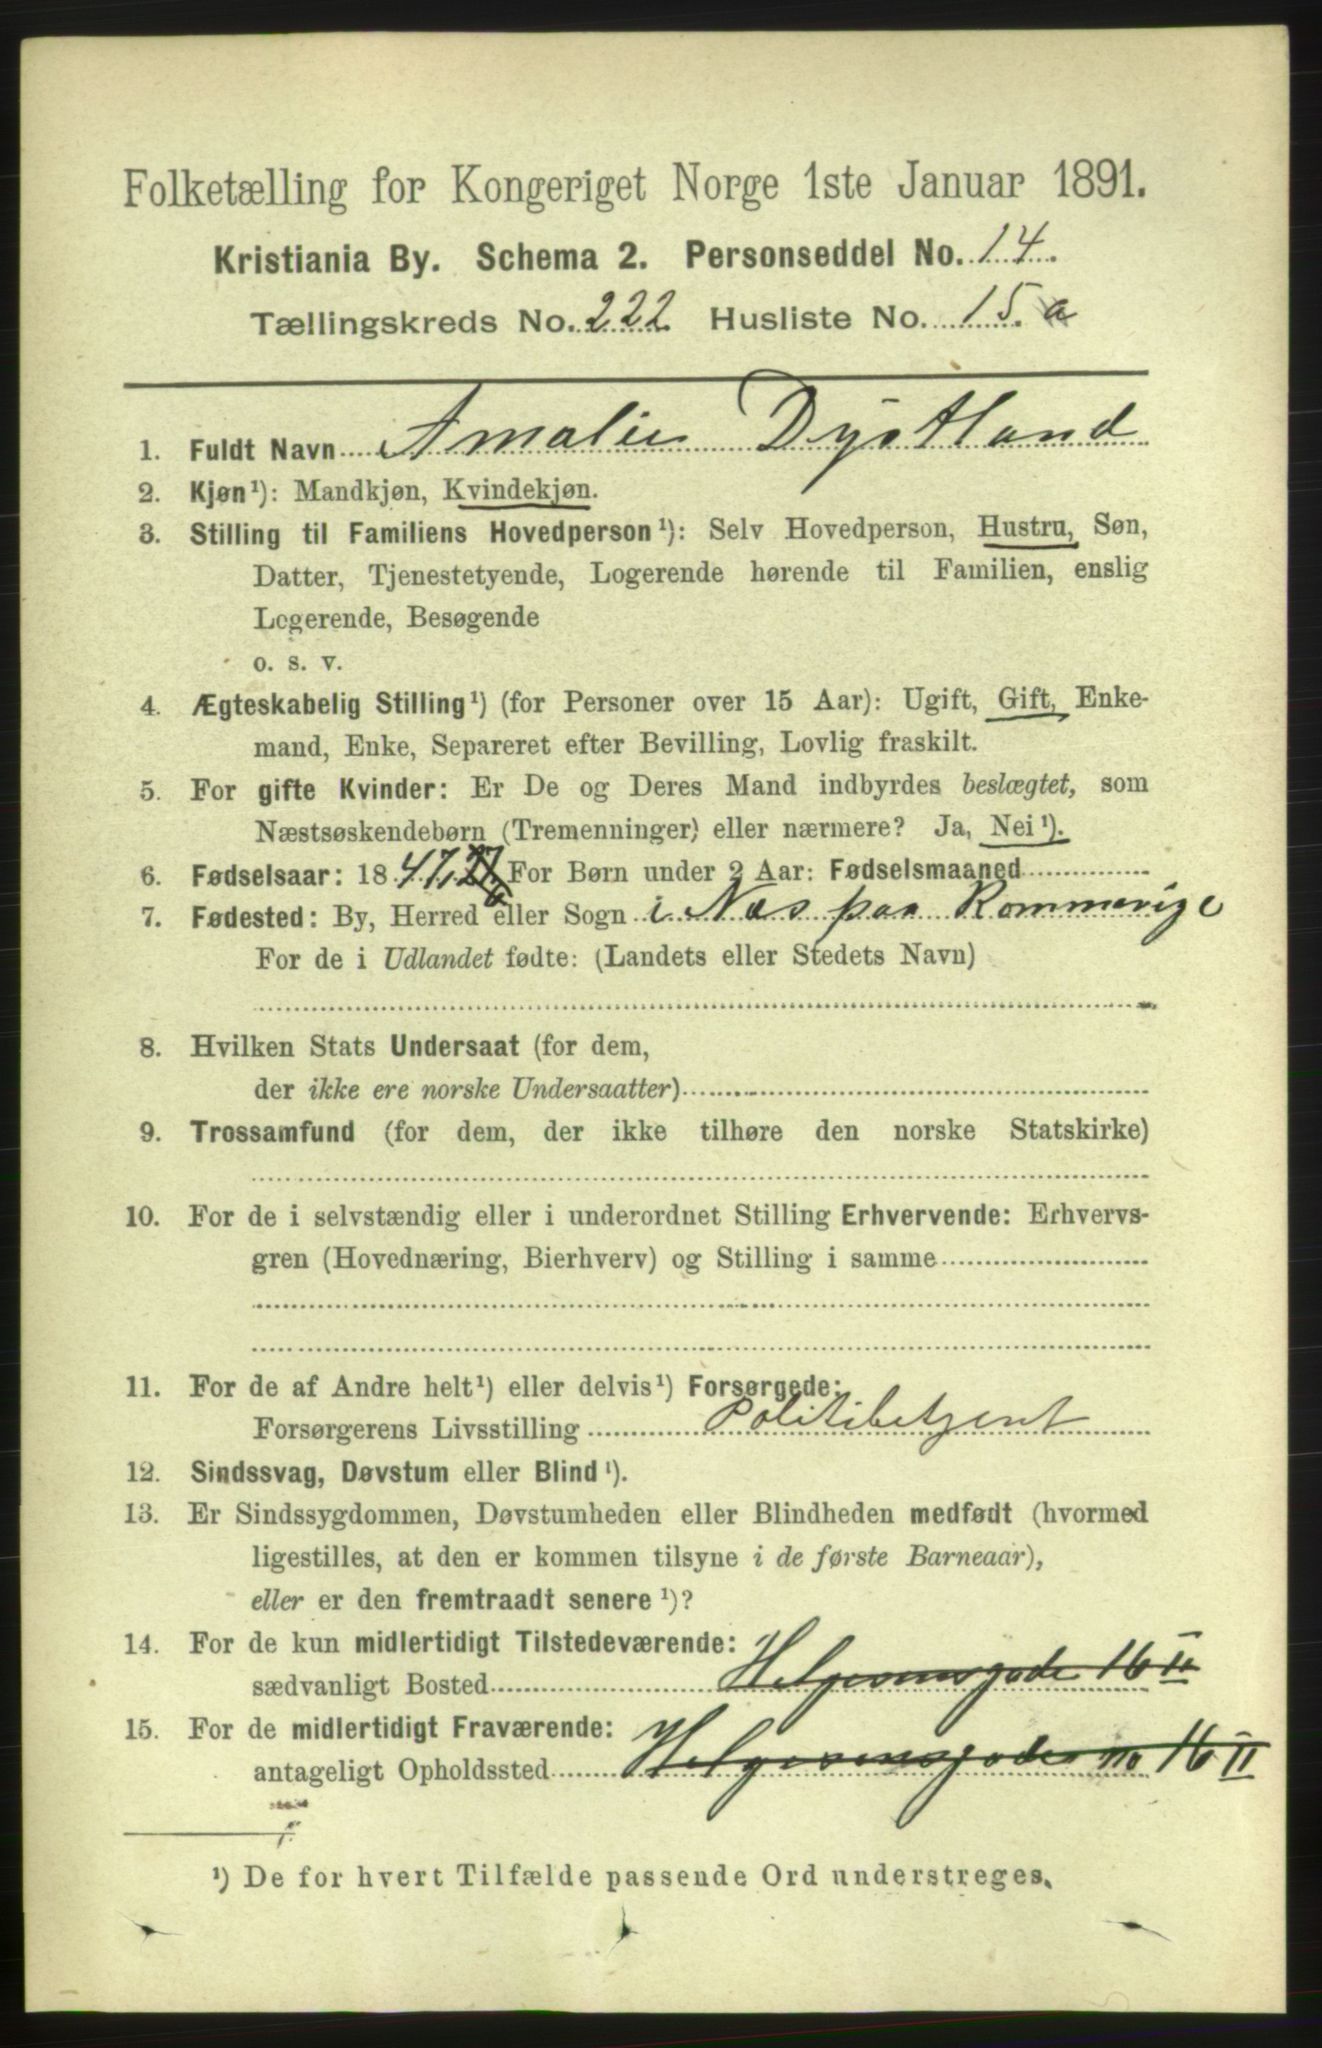 Folketælling for Kongeriget Norge 1ste Januar 1891.
Kristiania By. Schema 2. Personseddel No. 14.
Tællingskreds No. 222 Husliste No. 15. a
1. Fuldt Navn Amalie Dystland
2. Kjøn¹): Mandkjøn, Kvindekjøn.
3. Stilling til Familiens Hovedperson¹): Selv Hovedperson, Hustru, Søn,
Datter, Tjenestetyende, Logerende hørende til Familien, enslig
Logerende, Besøgende
o. s. v.
4. Ægteskabelig Stilling¹) (for Personer over 15 Aar): Ugift, Gift, Enke-
mand, Enke, Separeret efter Bevilling, Lovlig fraskilt.
5. For gifte Kvinder: Er De og Deres Mand indbyrdes beslægtet, som
Næstsøskendebørn (Tremenninger) eller nærmere? Ja, Nei¹).
6. Fødselsaar: 1847, For Børn under 2 Aar: Fødselsmaaned
7. Fødested: By, Herred eller Sogn i Næs paa Rommerige
For de i Udlandet fødte: (Landets eller Stedets Navn)
8. Hvilken Stats Undersaat (for dem,
der ikke ere norske Undersaatter)
9. Trossamfund (for dem, der ikke tilhøre den norske Statskirke)
10. For de i selvstændig eller i underordnet Stilling Erhvervende: Erhvervs-
gren (Hovednæring, Bierhverv) og Stilling i samme
11. For de af Andre helt¹) eller delvis¹) Forsørgede:
Forsørgerens Livsstilling Politibetjent
12. Sindssvag, Døvstum eller Blind¹).
13. Er Sindssygdommen, Døvstumheden eller Blindheden medfødt (hvormed
ligestilles, at den er kommen tilsyne i de første Barneaar),
eller er den fremtraadt senere¹)?
14. For de kun midlertidigt Tilstedeværende:
sædvanligt Bosted Helgesensgade 16 II
15. For de midlertidigt Fraværende:
antageligt Opholdssted Helgesensgade no 16 II
¹) De for hvert Tilfælde passende Ord understreges.